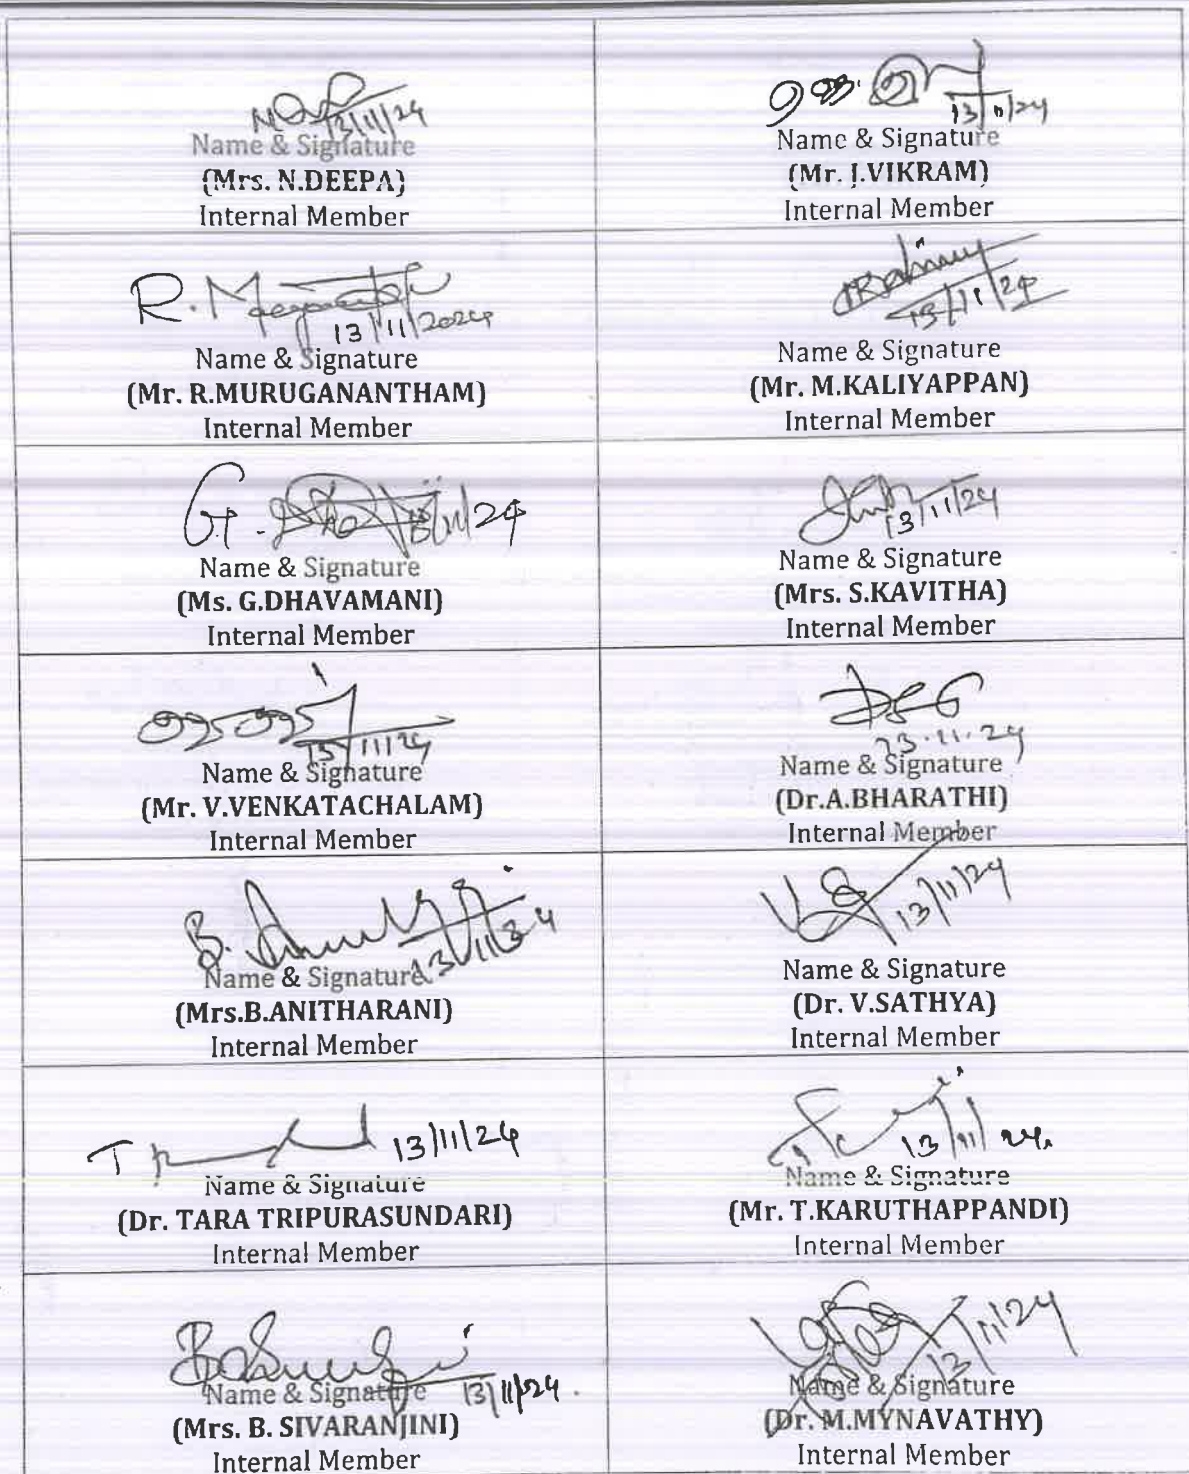 13/11/24
Name & Signature
(Mrs. N.DEEPA)
Internal Member
13/11/24
Name & Signature
(Mr. J.VIKRAM)
Internal Member
R.
13/11/2024
Name & Signature
(Mr. R.MURUGANANTHAM)
Internal Member
13/11/24
Name & Signature
(Mr. M.KALIYAPPAN)
Internal Member
G.
13/11/24
Name & Signature
(Ms. G.DHAVAMANI)
Internal Member
13/11/24
Name & Signature
(Mrs. S.KAVITHA)
Internal Member
13/11/24
Name & Signature
(Mr. V.VENKATACHALAM)
Internal Member
Name & Signature
(Dr.A.BHARATHI)
Internal Member
B.
13/11/24
Name & Signature
(Mrs.B.ANITHARANI)
Internal Member
13/11/24
Name & Signature
(Dr. V.SATHYA)
Internal Member
13/11/24
Name & Signature
(Dr. TARA TRIPURASUNDARI)
Internal Member
13/11/24
Name & Signature
(Mr. T.KARUTHAPPANDI)
Internal Member
13/11/24
Name & Signature
(Mrs. B. SIVARANJINI)
Internal Member
13/11/24
Name & Signature
(Dr. M.MYNAVATHY)
Internal Member